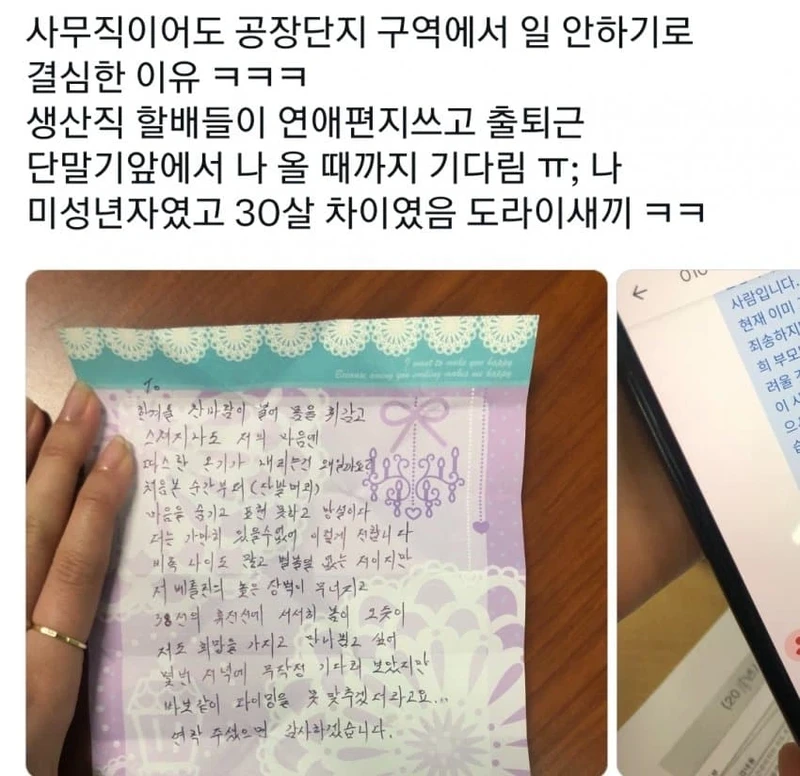 사무직이어도 공장단지 구역에서 일 안하기로
결심한 이유 ㅋㅋㅋ
생산직 할배들이 연애편지쓰고 출퇴근
단말기앞에서 나 올 때까지 기다림 ㅠ; 나
미성년자였고 30살 차이였음 도라이새끼 ㅋㅋ
I want to make you happy
Because seeing you smiling makes me happy
To
한겨울 찬바람이 불어 몸을 휘감고
스쳐지나도 저의 마음엔
따스한 온기가 내리는건 왜일까요
처음본 순간부터 (단발머리)
마음을 숨기고 표현 못하고 망설이다
더는 가만히 있을수없어 이렇게 전합니다
비록 나이도 많고 별볼일 없는 저이지만
저 베를린의 높은 장벽이 무너지고
38선의 휴전선에 서서히 봄이 오듯이
저도 희망을 가지고 만나뵙고 싶어
몇번 저녁에 무작정 기다려 보았지만
바보같이 타이밍을 못 맞추겠더라고요...
연락 주셨으면 감사하겠습니다.
←
010
사람입니다.
현재 이미
죄송하지
희 부모
려울
이 사
으
습
(20